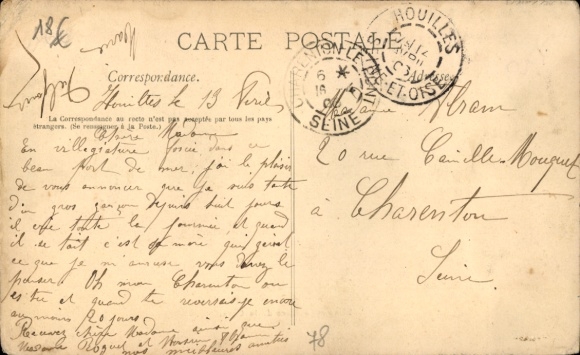 18€
CARTE POSTALE
Correspondance.
Houilles le 13
La Correspondance au recto n'est pas acceptée par tous les pays
étrangers. (Se renseigner à la Poste.)
Chère Madame
En villégiature forcée dans ce
beau port de mer, j'ai le plaisir
de vous annoncer que je suis tante
d'un gros garçon depuis huit jours
il crie toute la journée et quand
il se tait c'est mère qui
ce que je m'amuse vous devez le
penser. Oh mon Charenton ou
es tu et quand te reverrais-je encore
au moins 20 jours
Recevez chère Madame ainsi que
Madame et
nos meilleures amitiés
HOUILLES
SEINE-ET-OISE
CHARENTON-LE-PONT
SEINE
Adresse
Madame Abram
20 rue Camille Mouquet
à Charenton
Seine.
78